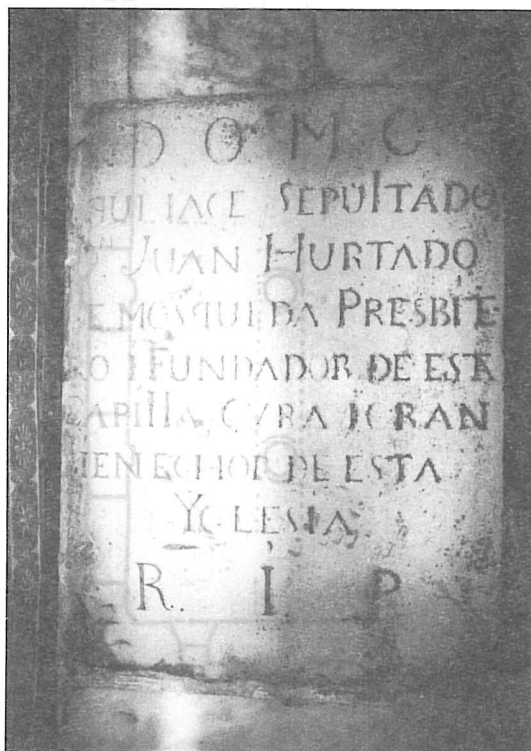 D O M C
QUI IACE SEPULTADO
JUAN HURTADO
E MOSQUEDA PRESBITE
RO I FUNDADOR DE ESTA
CAPILLA, CVRA I GRAN
IENECHOR DE ESTA
YGLESIA
R. I P